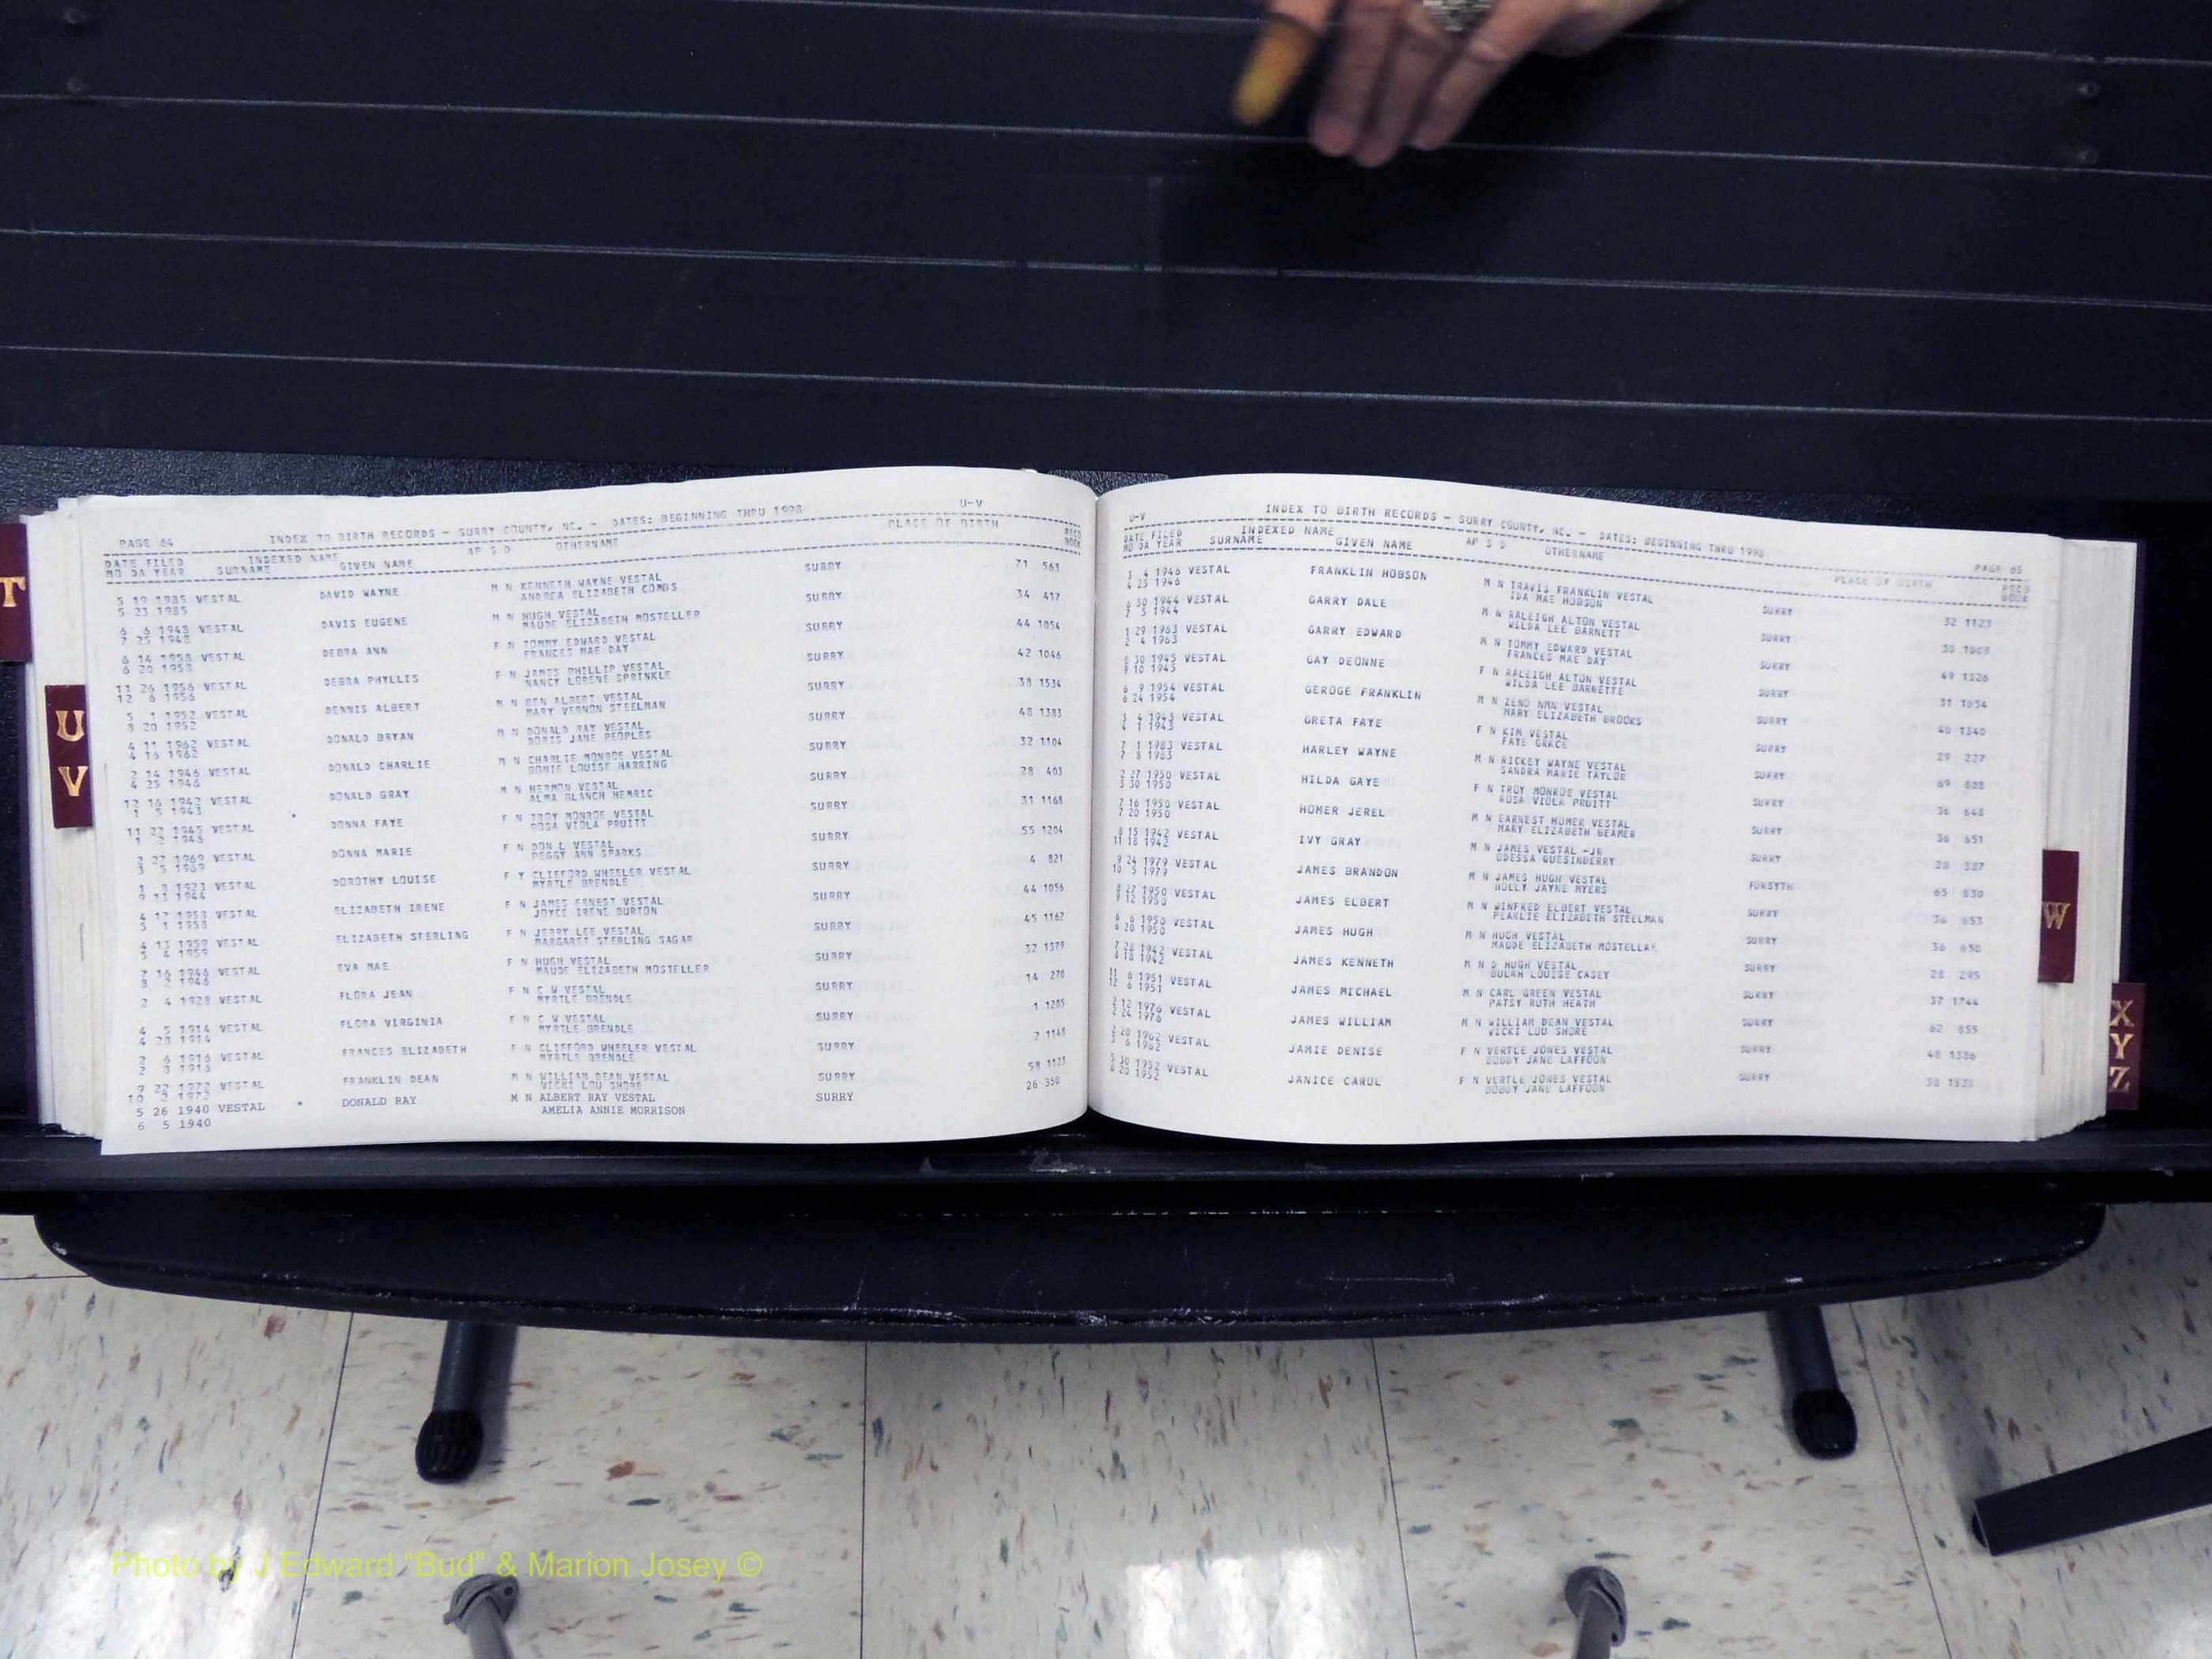 T
U
V
PAGE 64 INDEX TO BIRTH RECORDS - SURRY COUNTY, NC. - DATES: BEGINNING THRU 1998 U-V
DATE FILED INDEXED NAME AP S D OTHERNAME PLACE OF BIRTH RECD
MO DA YEAR SURNAME GIVEN NAME BOOK
5 19 1985 VESTAL DAVID WAYNE M N KENNETH WAYNE VESTAL SURRY 71 563
5 23 1985 ANDREA ELIZABETH COMBS
6 6 1948 VESTAL DAVIS EUGENE M N HUGH VESTAL SURRY 34 417
7 25 1948 MAUDE ELIZABETH MOSTELLER
6 14 1958 VESTAL DEBRA ANN F N TOMMY EDWARD VESTAL SURRY 44 1054
6 20 1958 FRANCES MAE DAY
11 26 1956 VESTAL DEBRA PHYLLIS F N JAMES PHILLIP VESTAL SURRY 42 1046
12 6 1956 NANCY LORENE SPRINKLE
5 1 1952 VESTAL DENNIS ALBERT M N BEN ALBERT VESTAL SURRY 38 1534
8 20 1952 MARY VERNON STEELMAN
4 11 1962 VESTAL DONALD BRYAN M N DONALD RAY VESTAL SURRY 48 1383
4 16 1962 DORIS JANE PEOPLES
2 14 1946 VESTAL DONALD CHARLIE M N CHARLIE MONROE VESTAL SURRY 32 1104
4 25 1946 BONIE LOUISE HARRING
12 16 1942 VESTAL DONALD GRAY M N HERMON VESTAL SURRY 28 403
1 5 1943 ALMA BLANCH HEMRIC
11 27 1945 VESTAL DONNA FAYE F N TROY MONROE VESTAL SURRY 31 1168
1 2 1946 ROSA VIOLA PRUITT
2 27 1969 VESTAL DONNA MARIE F N DON L VESTAL SURRY 55 1204
3 5 1969 PEGGY ANN SPARKS
1 8 1923 VESTAL DOROTHY LOUISE F Y CLIFFORD WHEELER VESTAL SURRY 4 821
9 13 1944 MYRTLE BRENDLE
4 17 1958 VESTAL ELIZABETH IRENE F N JAMES ERNEST VESTAL SURRY 44 1056
5 1 1958 JOYCE IRENE BURTON
4 13 1959 VESTAL ELIZABETH STERLING F N JERRY LEE VESTAL SURRY 45 1162
5 4 1959 MARGARET STERLING SAGAR
7 16 1946 VESTAL EVA MAE F N HUGH VESTAL SURRY 32 1379
8 2 1946 MAUDE ELIZABETH MOSTELLER
2 4 1928 VESTAL FLORA JEAN F N C W VESTAL SURRY 14 270
MYRTLE BRENDLE
4 5 1914 VESTAL FLORA VIRGINIA F N C W VESTAL SURRY 1 1285
4 28 1914 MYRTLE BRENDLE
2 6 1916 VESTAL FRANCES ELIZABETH F N CLIFFORD WHEELER VESTAL SURRY 2 1148
2 8 1916 MYRTLE BRENDLE
9 22 1972 VESTAL FRANKLIN DEAN M N WILLIAM DEAN VESTAL SURRY 58 1123
10 2 1972 VICKI LOU SHORE
5 26 1940 VESTAL * DONALD RAY M N ALBERT RAY VESTAL SURRY 26 350
6 5 1940 AMELIA ANNIE MORRISON
U-V INDEX TO BIRTH RECORDS - SURRY COUNTY, NC. - DATES: BEGINNING THRU 1998 PAGE 65
DATE FILED INDEXED NAME AP S D OTHERNAME PLACE OF BIRTH RECD
MO DA YEAR SURNAME GIVEN NAME BOOK
3 4 1946 VESTAL FRANKLIN HOBSON M N TRAVIS FRANKLIN VESTAL SURRY 32 1123
4 25 1946 IDA MAE HOBSON
6 30 1944 VESTAL GARRY DALE M N RALEIGH ALTON VESTAL SURRY 30
7 5 1944 WILDA LEE BARNETT
1 29 1963 VESTAL GARRY EDWARD M N TOMMY EDWARD VESTAL SURRY 49 1326
2 4 1963 FRANCES MAE DAY
8 30 1945 VESTAL GAY DEONNE F N RALEIGH ALTON VESTAL SURRY 31 1054
9 10 1945 WILDA LEE BARNETTE
6 9 1954 VESTAL GEROGE FRANKLIN M N ZENO NMN VESTAL SURRY 40 1340
6 24 1954 MARY ELIZABETH BROOKS
3 4 1943 VESTAL GRETA FAYE F N KIM VESTAL SURRY 29 227
4 1 1943 FAYE GRACE
7 1 1983 VESTAL HARLEY WAYNE M N RICKEY WAYNE VESTAL SURRY 69 808
7 8 1983 SANDRA MARIE TAYLOR
2 27 1950 VESTAL HILDA GAYE F N TROY MONROE VESTAL SURRY 36 648
3 30 1950 ROSA VIOLA PRUITT
7 16 1950 VESTAL HOMER JEREL M N EARNEST HOMER VESTAL SURRY 36 651
7 20 1950 MARY ELIZABETH BEAMER
8 15 1942 VESTAL IVY GRAY M N JAMES VESTAL -JR SURRY 28 387
11 18 1942 ODESSA QUESINBERRY
9 24 1979 VESTAL JAMES BRANDON M N JAMES HUGH VESTAL FORSYTH 65 830
10 5 1979 HOLLY JAYNE MYERS
8 27 1950 VESTAL JAMES ELBERT M N WINFRED ELBERT VESTAL SURRY 36 653
9 12 1950 PEARLIE ELIZABETH STEELMAN
6 6 1950 VESTAL JAMES HUGH M N HUGH VESTAL SURRY 36 650
6 20 1950 MAUDE ELIZABETH MOSTELLAR
7 28 1942 VESTAL JAMES KENNETH M N D HUGH VESTAL SURRY 28 295
8 18 1942 BULAH LOUISE CASEY
11 6 1951 VESTAL JAMES MICHAEL M N CARL GREEN VESTAL SURRY 37 1744
12 6 1951 PATSY RUTH HEATH
2 12 1976 VESTAL JAMES WILLIAM M N WILLIAM DEAN VESTAL SURRY 62 855
2 24 1976 VICKI LOU SHORE
2 20 1962 VESTAL JAMIE DENISE F N VERTLE JONES VESTAL SURRY 48 1386
3 6 1962 BOBBY JANE LAFFOON
5 30 1952 VESTAL JANICE CAROL F N VERTLE JONES VESTAL SURRY 38
6 20 1952 BOBBY JANE LAFFOON
W
X
Y
Z
Photo by J Edward "Bud" & Marion Josey ©